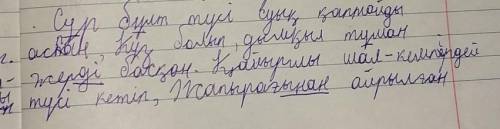 Сұр бұлт түсі суық қаптайды
г. аспан, Күз болып, дымқыл тұман
жерді басқан. Қайырлы шал-кемпірдей
түсі кетіп, Жапырағынан айрылған